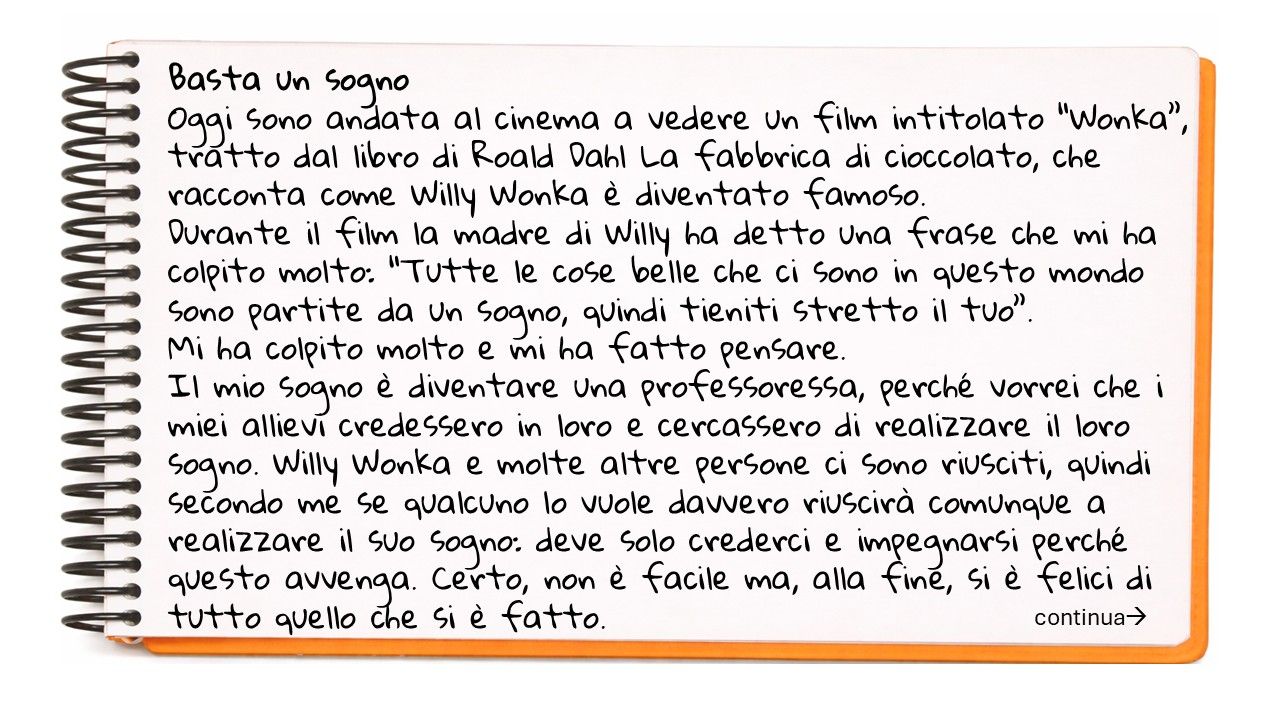 Basta un sogno
Oggi sono andata al cinema a vedere un film intitolato "Wonka",
tratto dal libro di Roald Dahl La fabbrica di cioccolato, che
racconta come Willy Wonka è diventato famoso.
Durante il film la madre di Willy ha detto una frase che mi ha
colpito molto: "Tutte le cose belle che ci sono in questo mondo
sono partite da un sogno, quindi tieniti stretto il tuo".
Mi ha colpito molto e mi ha fatto pensare.
Il mio sogno è diventare una professoressa, perché vorrei che i
miei allievi credessero in loro e cercassero di realizzare il loro
sogno. Willy Wonka e molte altre persone ci sono riusciti, quindi
secondo me se qualcuno lo vuole davvero riuscirà comunque a
realizzare il suo sogno: deve solo crederci e impegnarsi perché
questo avvenga. Certo, non è facile ma, alla fine, si è felici di
tutto quello che si è fatto.
continua→